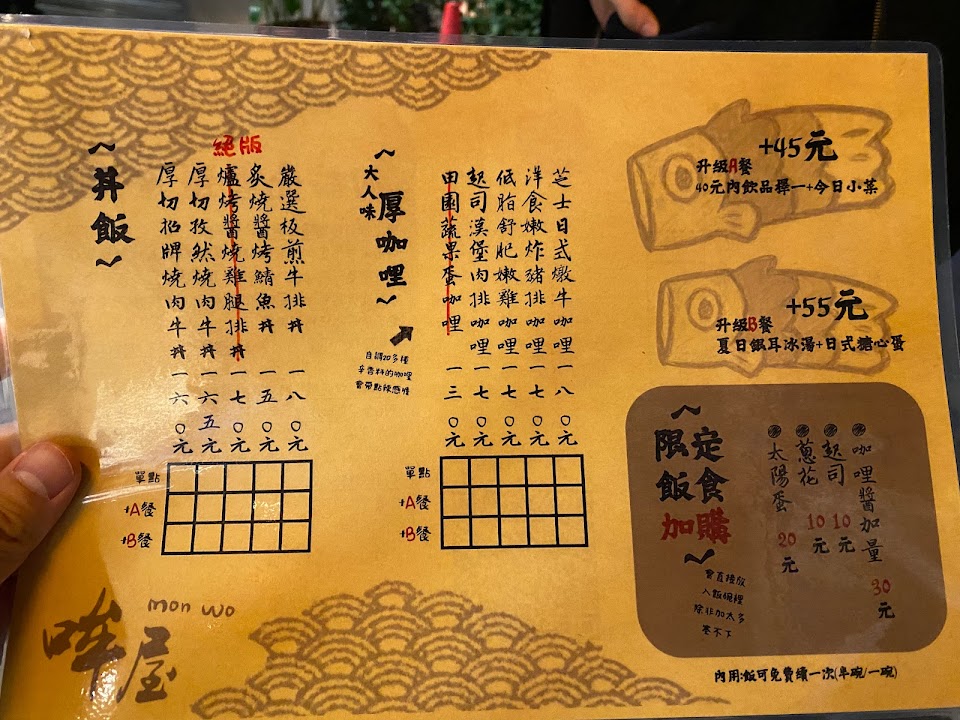 ~丼飯~
厚切招牌燒肉牛丼 一六〇元
厚切孜然燒肉牛丼 一六五元
絕版
爐烤醬燒雞腿排丼 一七〇元
炙燒醬烤鯖魚丼 一五〇元
嚴選板煎牛排丼 一八〇元
單點
+A餐
+B餐
~大人味厚咖哩~
自調20多種
辛香料的咖哩
會帶點辣感喔
田園蔬果蛋咖哩 一三〇元
起司漢堡肉排咖哩 一七〇元
低脂舒肥嫩雞咖哩 一七〇元
洋食嫩炸豬排咖哩 一七〇元
芝士日式燉牛咖哩 一八〇元
單點
+A餐
+B餐
+45元
升级A餐
40元內飲品擇一+今日小菜
+55元
升级B餐
夏日銀耳冰湯+日式糖心蛋
~限定飯食加購~
會直接放
入飯碗裡
除非加太多
塞不下
太陽蛋 20元
蔥花 10元
起司 10元
咖哩醬加量 30元
內用:飯可免費續一次(半碗/一碗)
mon wo
哞屋